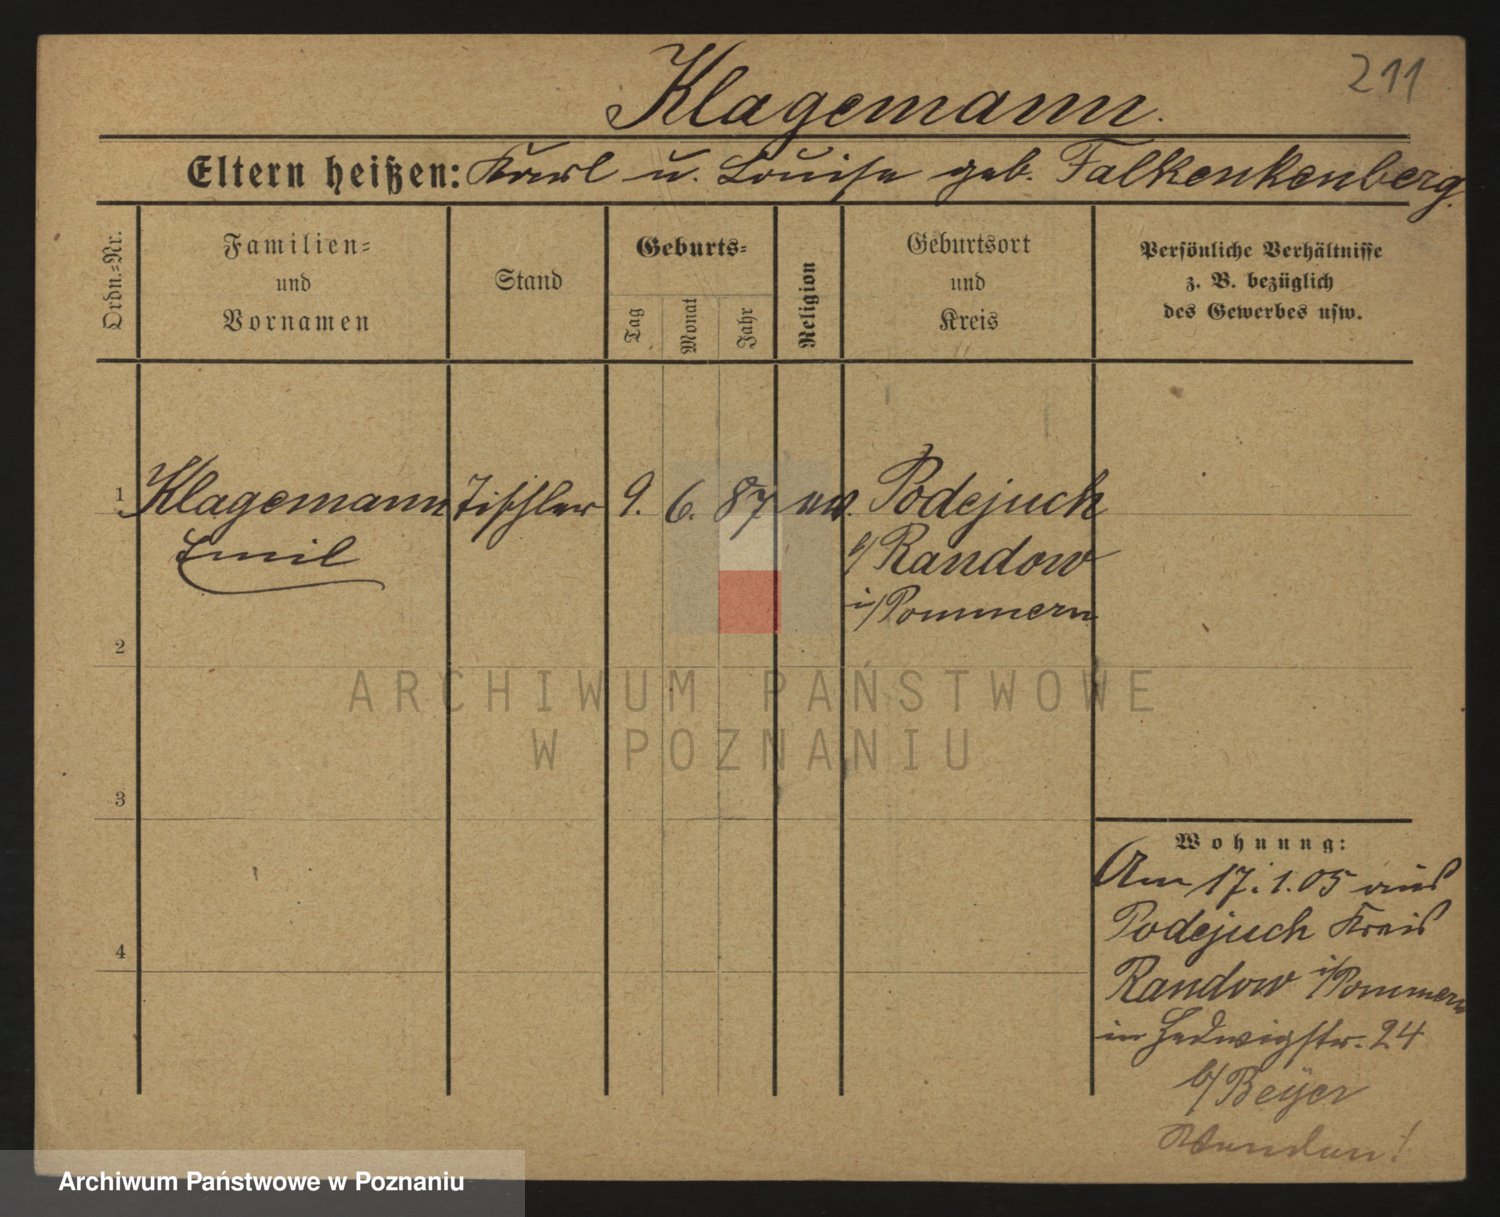 211
Klagemann.
Eltern heißen: Karl u. Louise geb. Falkenkenberg.
Ordn.-Nr.
Familien-
und
Vornamen
Stand
Geburts-
Tag
Monat
Jahr
Religion
Geburtsort
und
Kreis
Persönliche Verhältnisse
z. B. bezüglich
des Gewerbes usw.
1 Klagemann Tischler 9. 6. 87 ev. Podejuch
Emil b/ Randow
i/Pommern
2
3
4
Wohnung:
Am 17.1.05 aus
Podejuch Kreis
Randow i/Pommern
in Hedwigstr. 24
b/ Beyer
ARCHIWUM PAŃSTWOWE
W POZNANIU
Archiwum Państwowe w Poznaniu